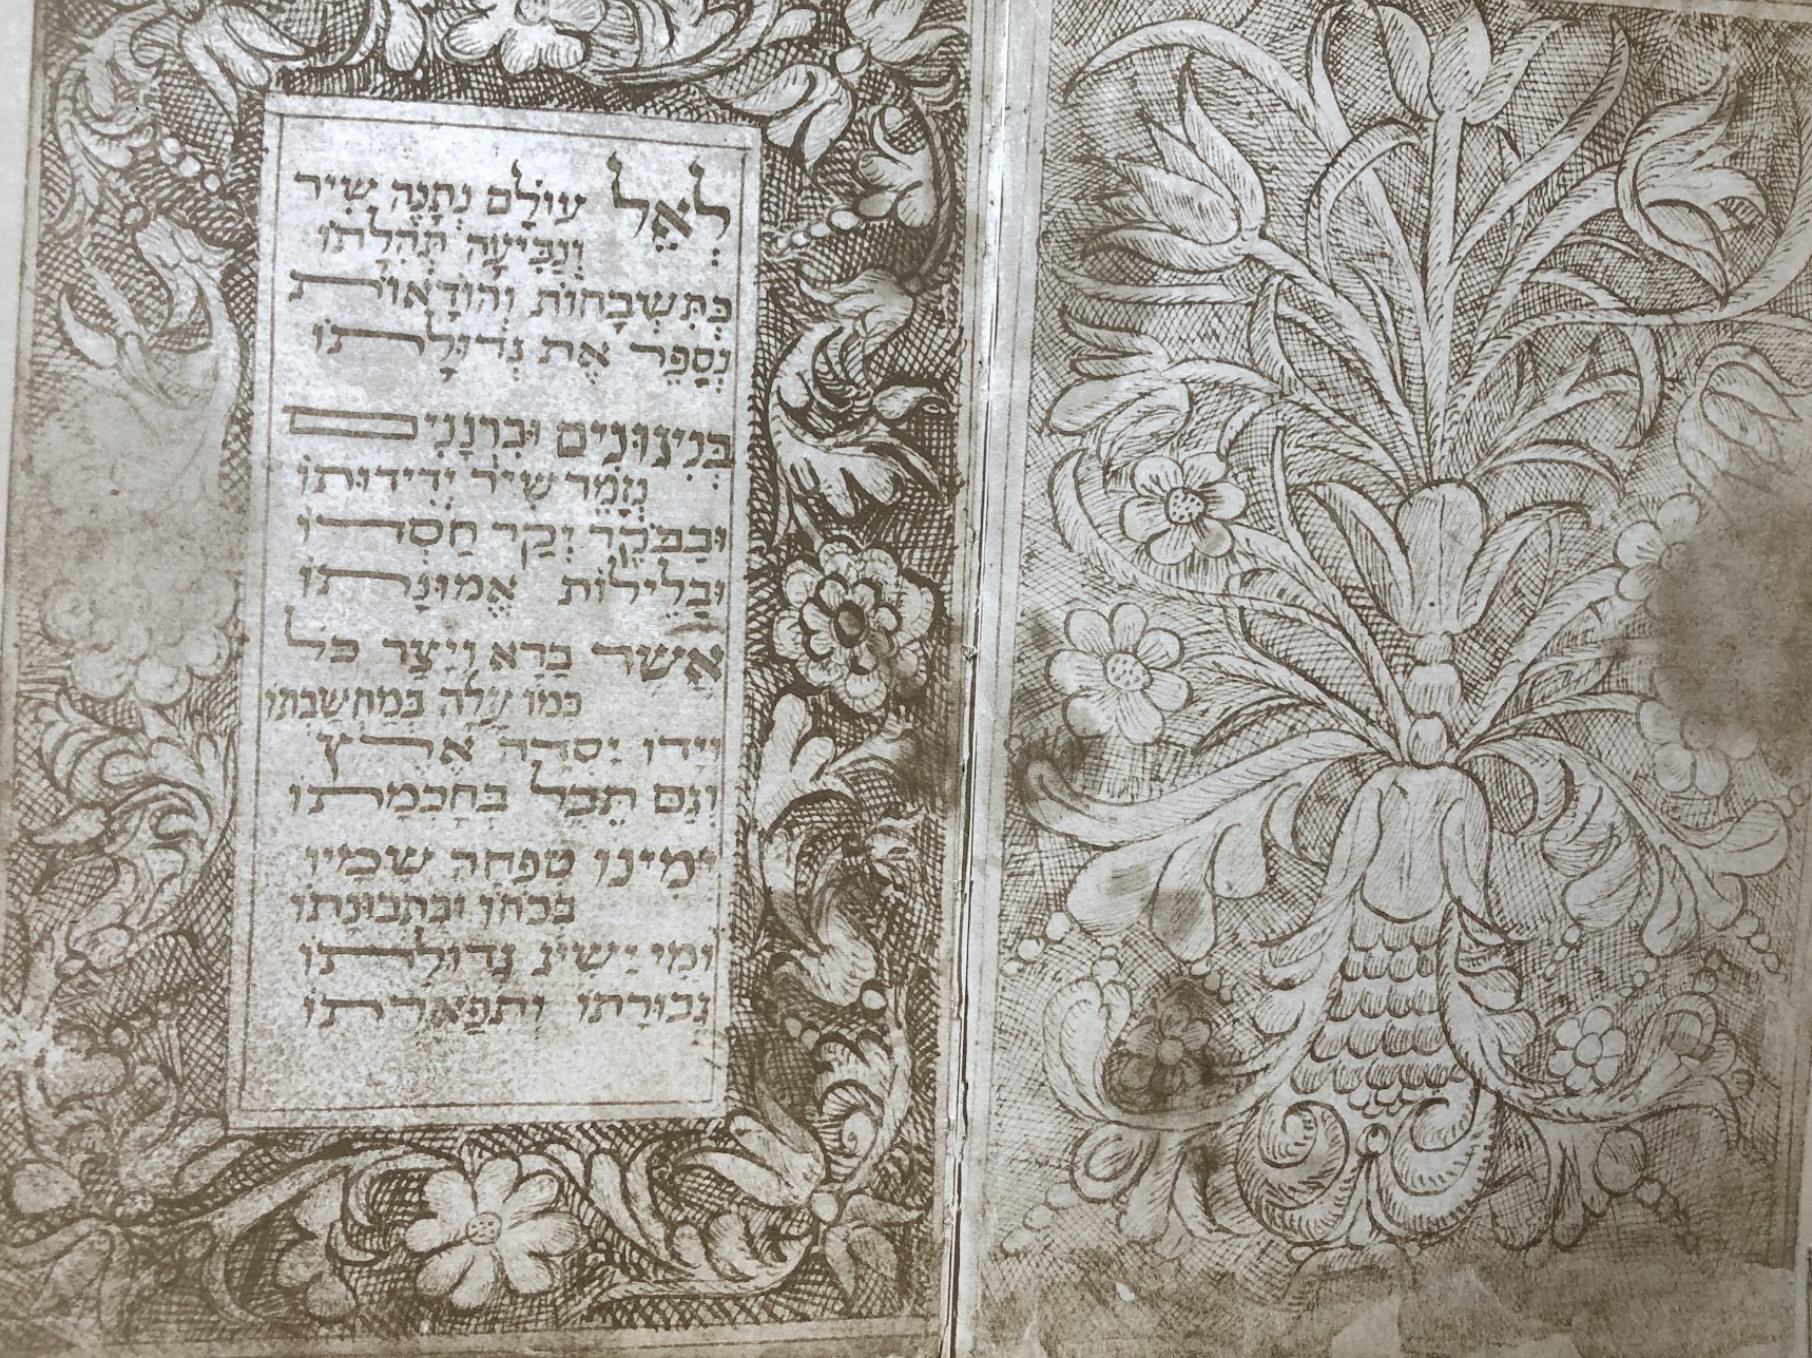 לְאֵל עוֹלָם נִתְנֶה שִׁיר
וְנַבִּיעָה תְּהִלָּתוֹ
בְּתִשְׁבָּחוֹת וְהוֹדָאוֹת
נְסַפֵּר אֶת גְּדוּלָּתוֹ
בְּנִיצוּנִים וּבִרְנָנִים
נְזַמֵּר שִׁיר יְדִידוּתוֹ
וּבַבֹּקֶר יְקַר חַסְדּוֹ
וּבַלֵּילוֹת אֱמוּנָתוֹ
אֲשֶׁר בָּרָא וְיָצַר כֹּל
כְּמוֹ עָלָה בְּמַחְשַׁבְתּוֹ
וְיָדוֹ יָסְדָה אֶרֶץ
וְגַם תֵּבֵל בְּחָכְמָתוֹ
יְמִינוֹ טִפְּחָה שָׁמָיו
בְּכֹחוֹ וּבִתְבוּנָתוֹ
וּמִי יַשִּׂיג גְּדוּלָתוֹ
גְּבוּרָתוֹ וְתִפְאַרְתּוֹ